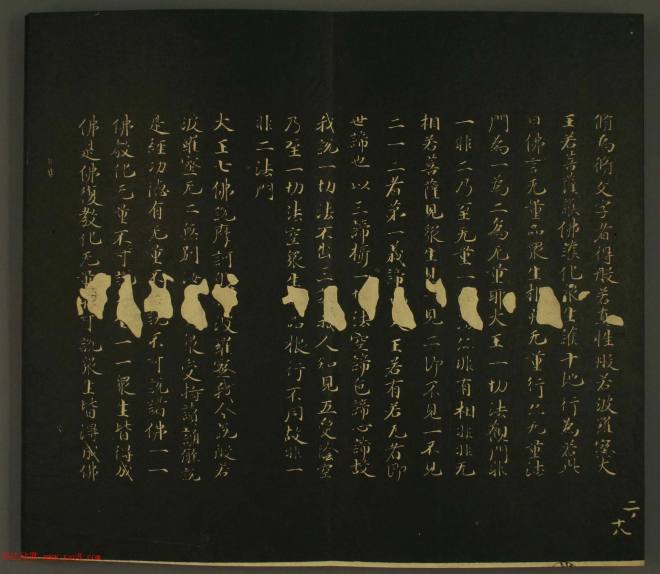 脩為脩文字者得般若真性般若波羅蜜大
王若菩薩護佛護化眾生護十地行為若此
白佛言无量品眾生根无量行亦无量法
門為一為二為无量耶大王一切法觀門非
一非二乃至无量一法亦非有相非非无
相若菩薩見眾生見見二即不見一不見
二一二者第一義諦王若有若无者即
世諦也以三諦攝一法空諦色諦心諦故
我說一切法不出三我人知見五受陰空
乃至一切法空眾生品根行不同故非一
非二法門
大王七佛說摩訶波羅蜜我今說般若
波羅蜜无二無別眾受持讀誦解說
是經功德有无量說不可說諸佛一一
佛教化无量不可說一一眾生皆得成
佛是佛復教化无量可說眾生皆得成佛
二 十八
www.yac8.com